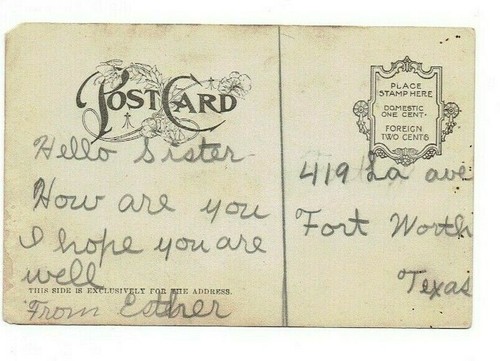 POST CARD
PLACE
STAMP HERE
DOMESTIC
ONE CENT.
FOREIGN
TWO CENTS
Hello Sister
How are you
I hope you are
well
THIS SIDE IS EXCLUSIVELY FOR THE ADDRESS.
From Esther
419 La ave
Fort Worth
Texas